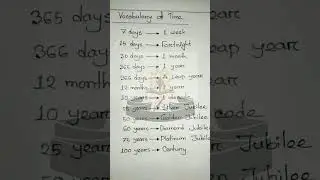 Vocabulary of Time
7 days → 1 week
15 days → Fortnight
30 days → 1 month
365 days → 1 year
366 days → A leap year
12 months → 1 year
10 years →
25 years → Silver Jubilee
50 years → Golden Jubilee
60 years → Diamond Jubilee
75 years → Platinum Jubilee
100 years → Century
365 days
366 days
12 months
10 years
25 years
year
leap year
year
Jubilee